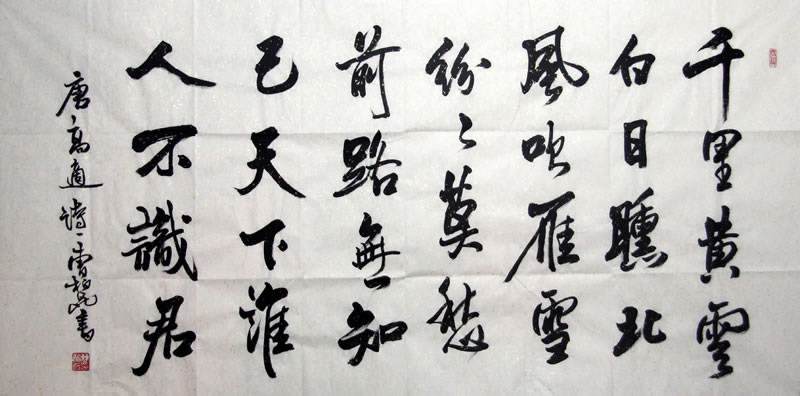 千里黄雲
白日曛北
風吹雁雪
紛々莫愁
前路無知
己天下誰
人不識君
唐高適詩 書